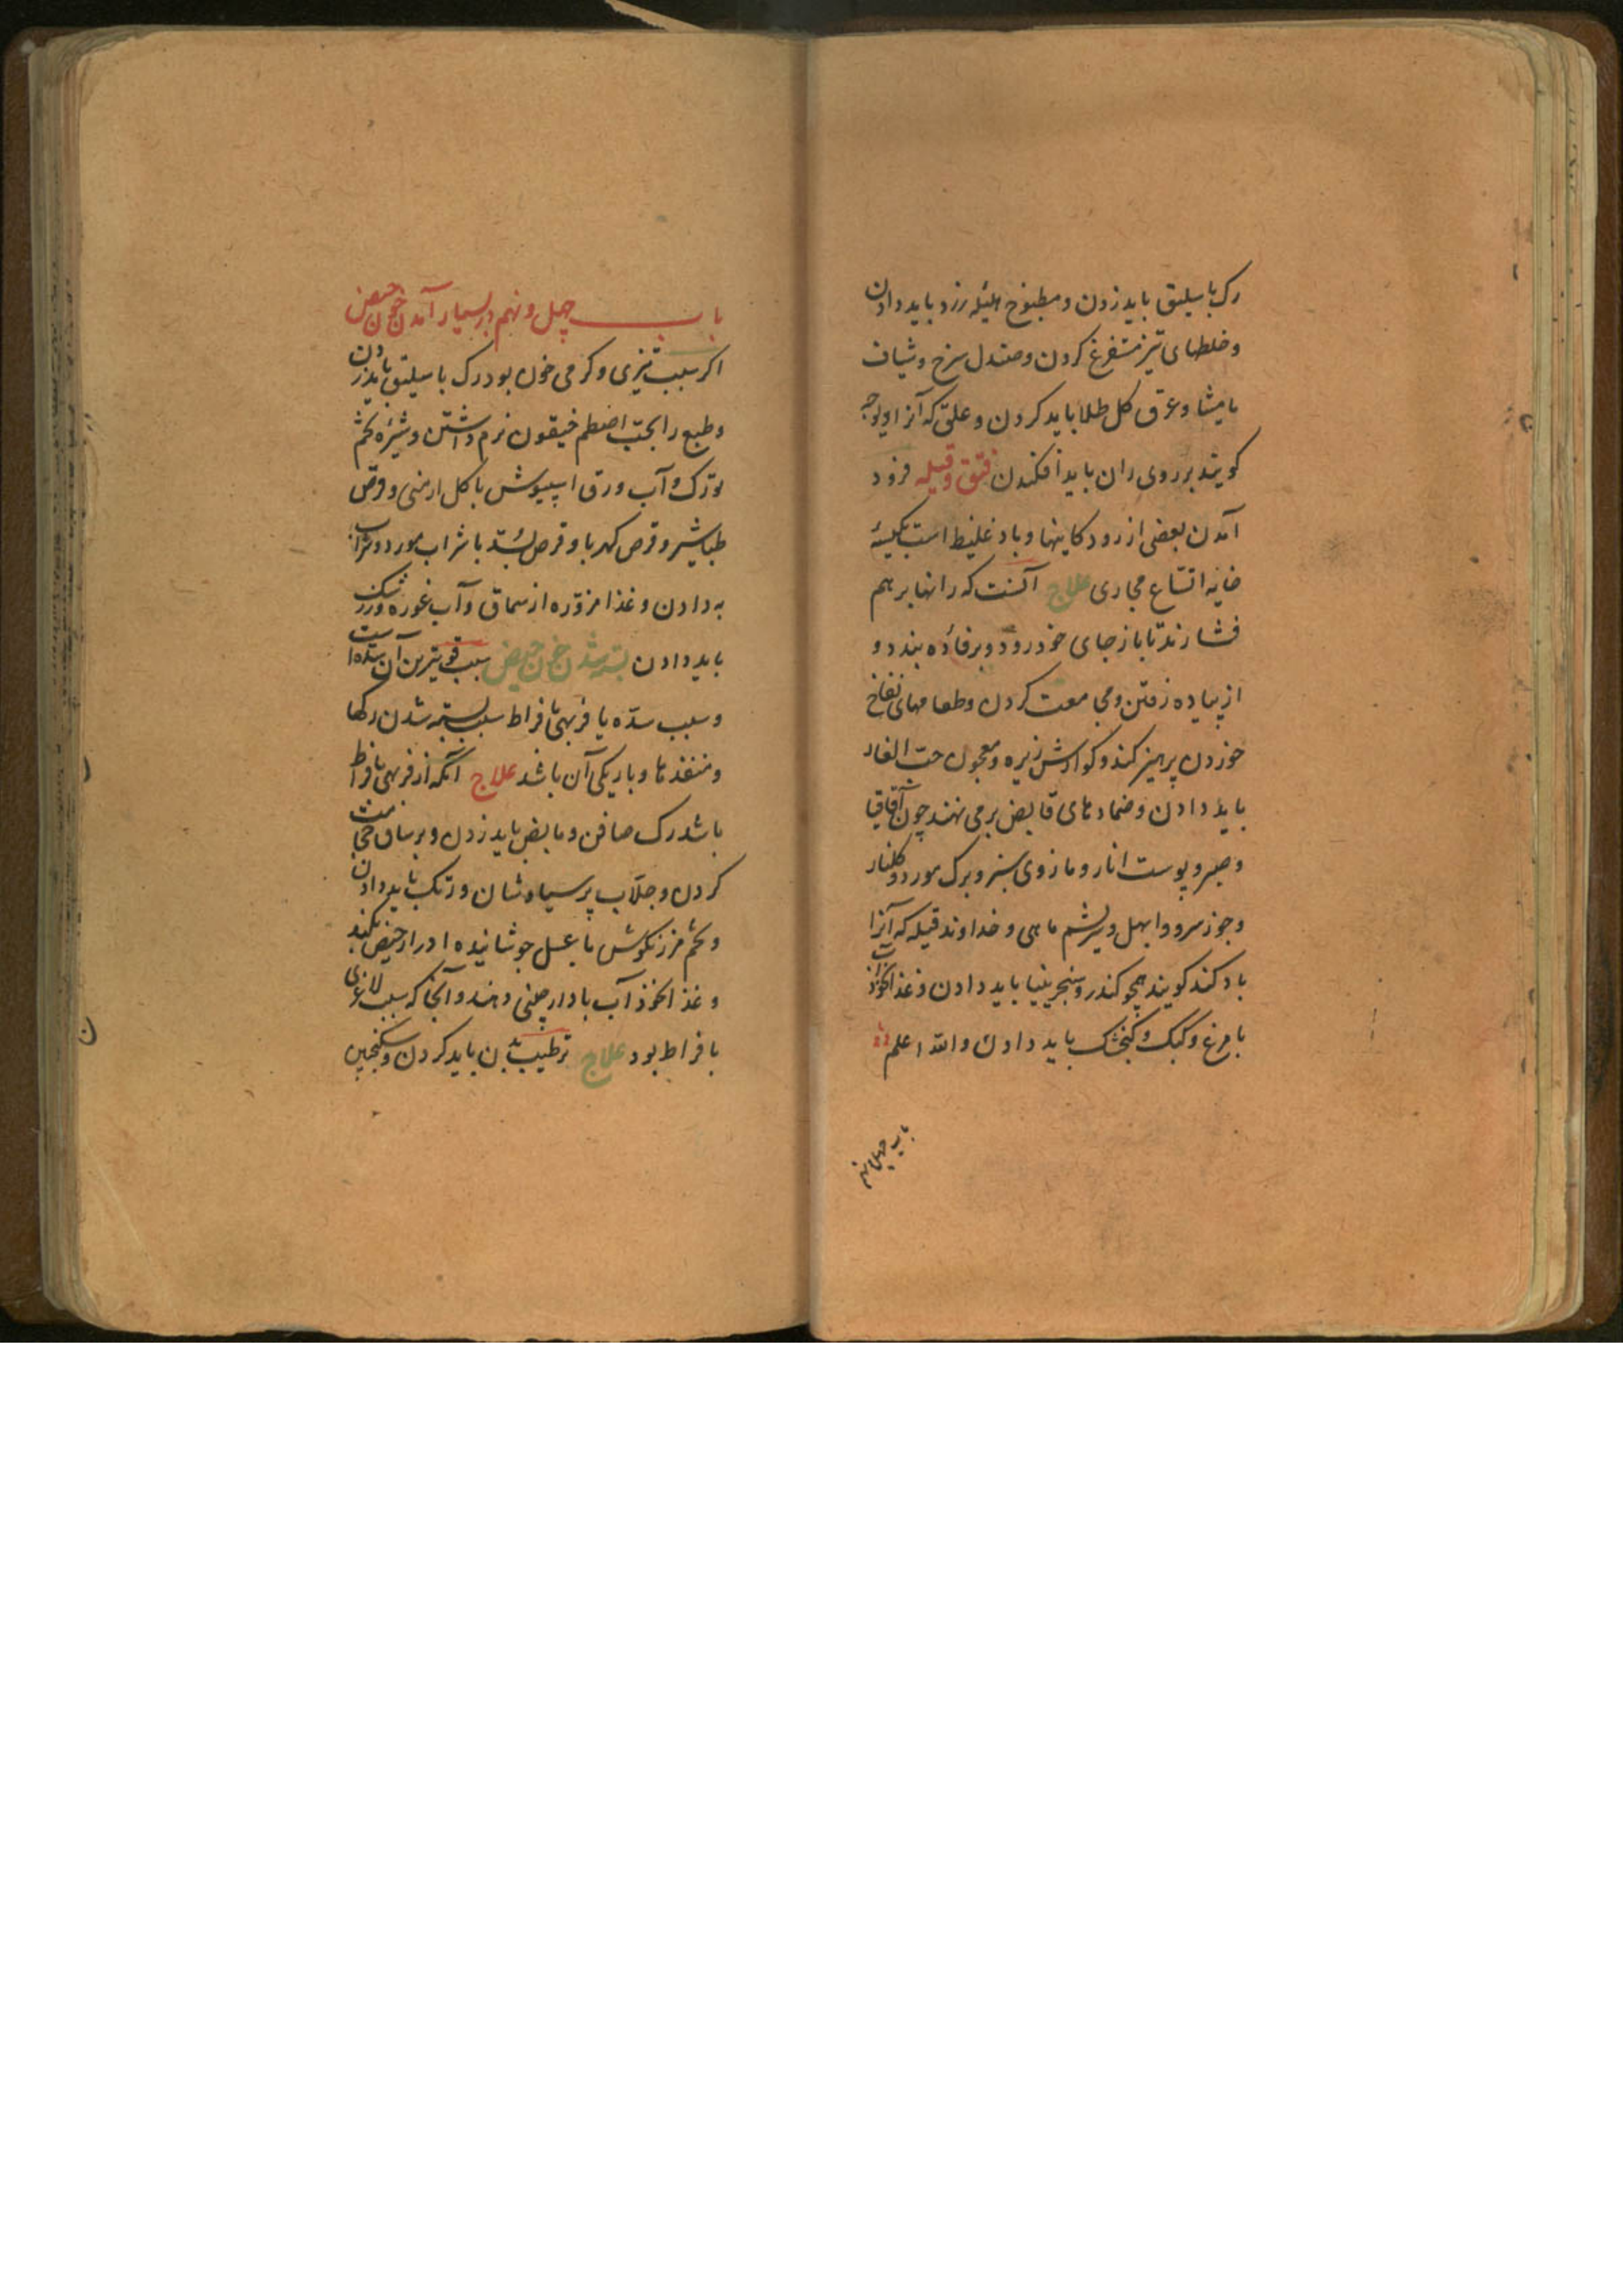 رک باسلیق باید زدن و مطبوخ هلیله زرد باید دادن
و خلطهای تیز مستفرغ کردن و صندل سرخ و شیاف
مامیثا و عرق کل طلا باید کردن و علتی که آنرا
کویند بر روی ران باید افکندن فتق و قیله فرود
آمدن بعضی از رودکانیها و باد غلیظ است بکیسهٔ
خایه اتساع مجاری علاج آنست که رانها بر هم
فشارند تا باز جای خود رود و برفاده بندد و
از پیاده رفتن و مجامعت کردن و طعامهای نفاخ
خوردن پرهیز کند و کوارش زیره و معجون حب الغار
باید دادن و ضمادهای قابض برمی نهند چون آقاقیا
و صبر و پوست انار و مازوی سبز و برک مورد و کلنار
و جوز سرو و ابهل و سریشم ماهی و خداوند قیله که آنرا
باد کند کویند همچو کندر و سنجرینیا باید دادن و غذا نخود آب
با مرغ و کبک و کنجشک باید دادن والله اعلم
باب چهل و نهم
باب چهل و نهم در بسیار آمدن خون حیض
اکر سبب تیزی و کرمی خون بود رک باسلیق باید زدن
و طبع را بحب نرم داشتن و شیره تخم
تورک و آب ورق اسپیوش با کل ارمنی و قرص
طباشیر و قرص کهربا و قرص بسد با شراب مورد و شراب
به دادن و غذا مزوره از سماق و آب غوره و زرشک
باید دادن بسته شدن خون حیض سبب قویترین آن سده است
و سبب سده یا فربهی بافراط سبب بسته شدن رکها
و منفذها و باریکی آن باشد علاج آنکه از فربهی بافراط
باشد رک صافن و مابض باید زدن و بر ساق حجامت
کردن و جلاب پرسیاوشان و زتک باید دادن
و تخم مرزنکوش با عسل جوشانیده ادرار حیض بکند
و غذا نخود آب با دارچینی دهند و آنجا که سبب لاغری
بافراط بود علاج ترطیب بدن باید کردن و سکنجبین